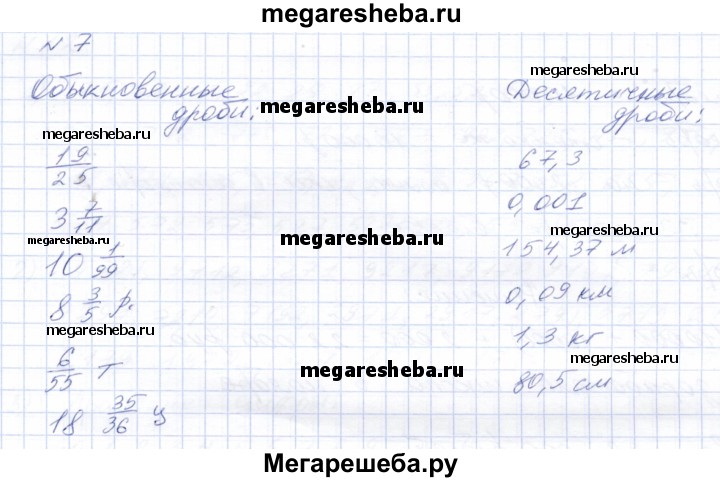 megaresheba.ru
№ 7
Обыкновенные дроби:
megaresheba.ru
Десятичные дроби:
megaresheba.ru
megaresheba.ru
19/25
67,3
3 7/11
0,001
megaresheba.ru
megaresheba.ru
megaresheba.ru
10 1/99
154,37 м
8 3/5 р.
0,09 км
megaresheba.ru
1,3 кг
megaresheba.ru
6/55 т
megaresheba.ru
80,5 см
18 35/36 ц
Мегарешеба.ру